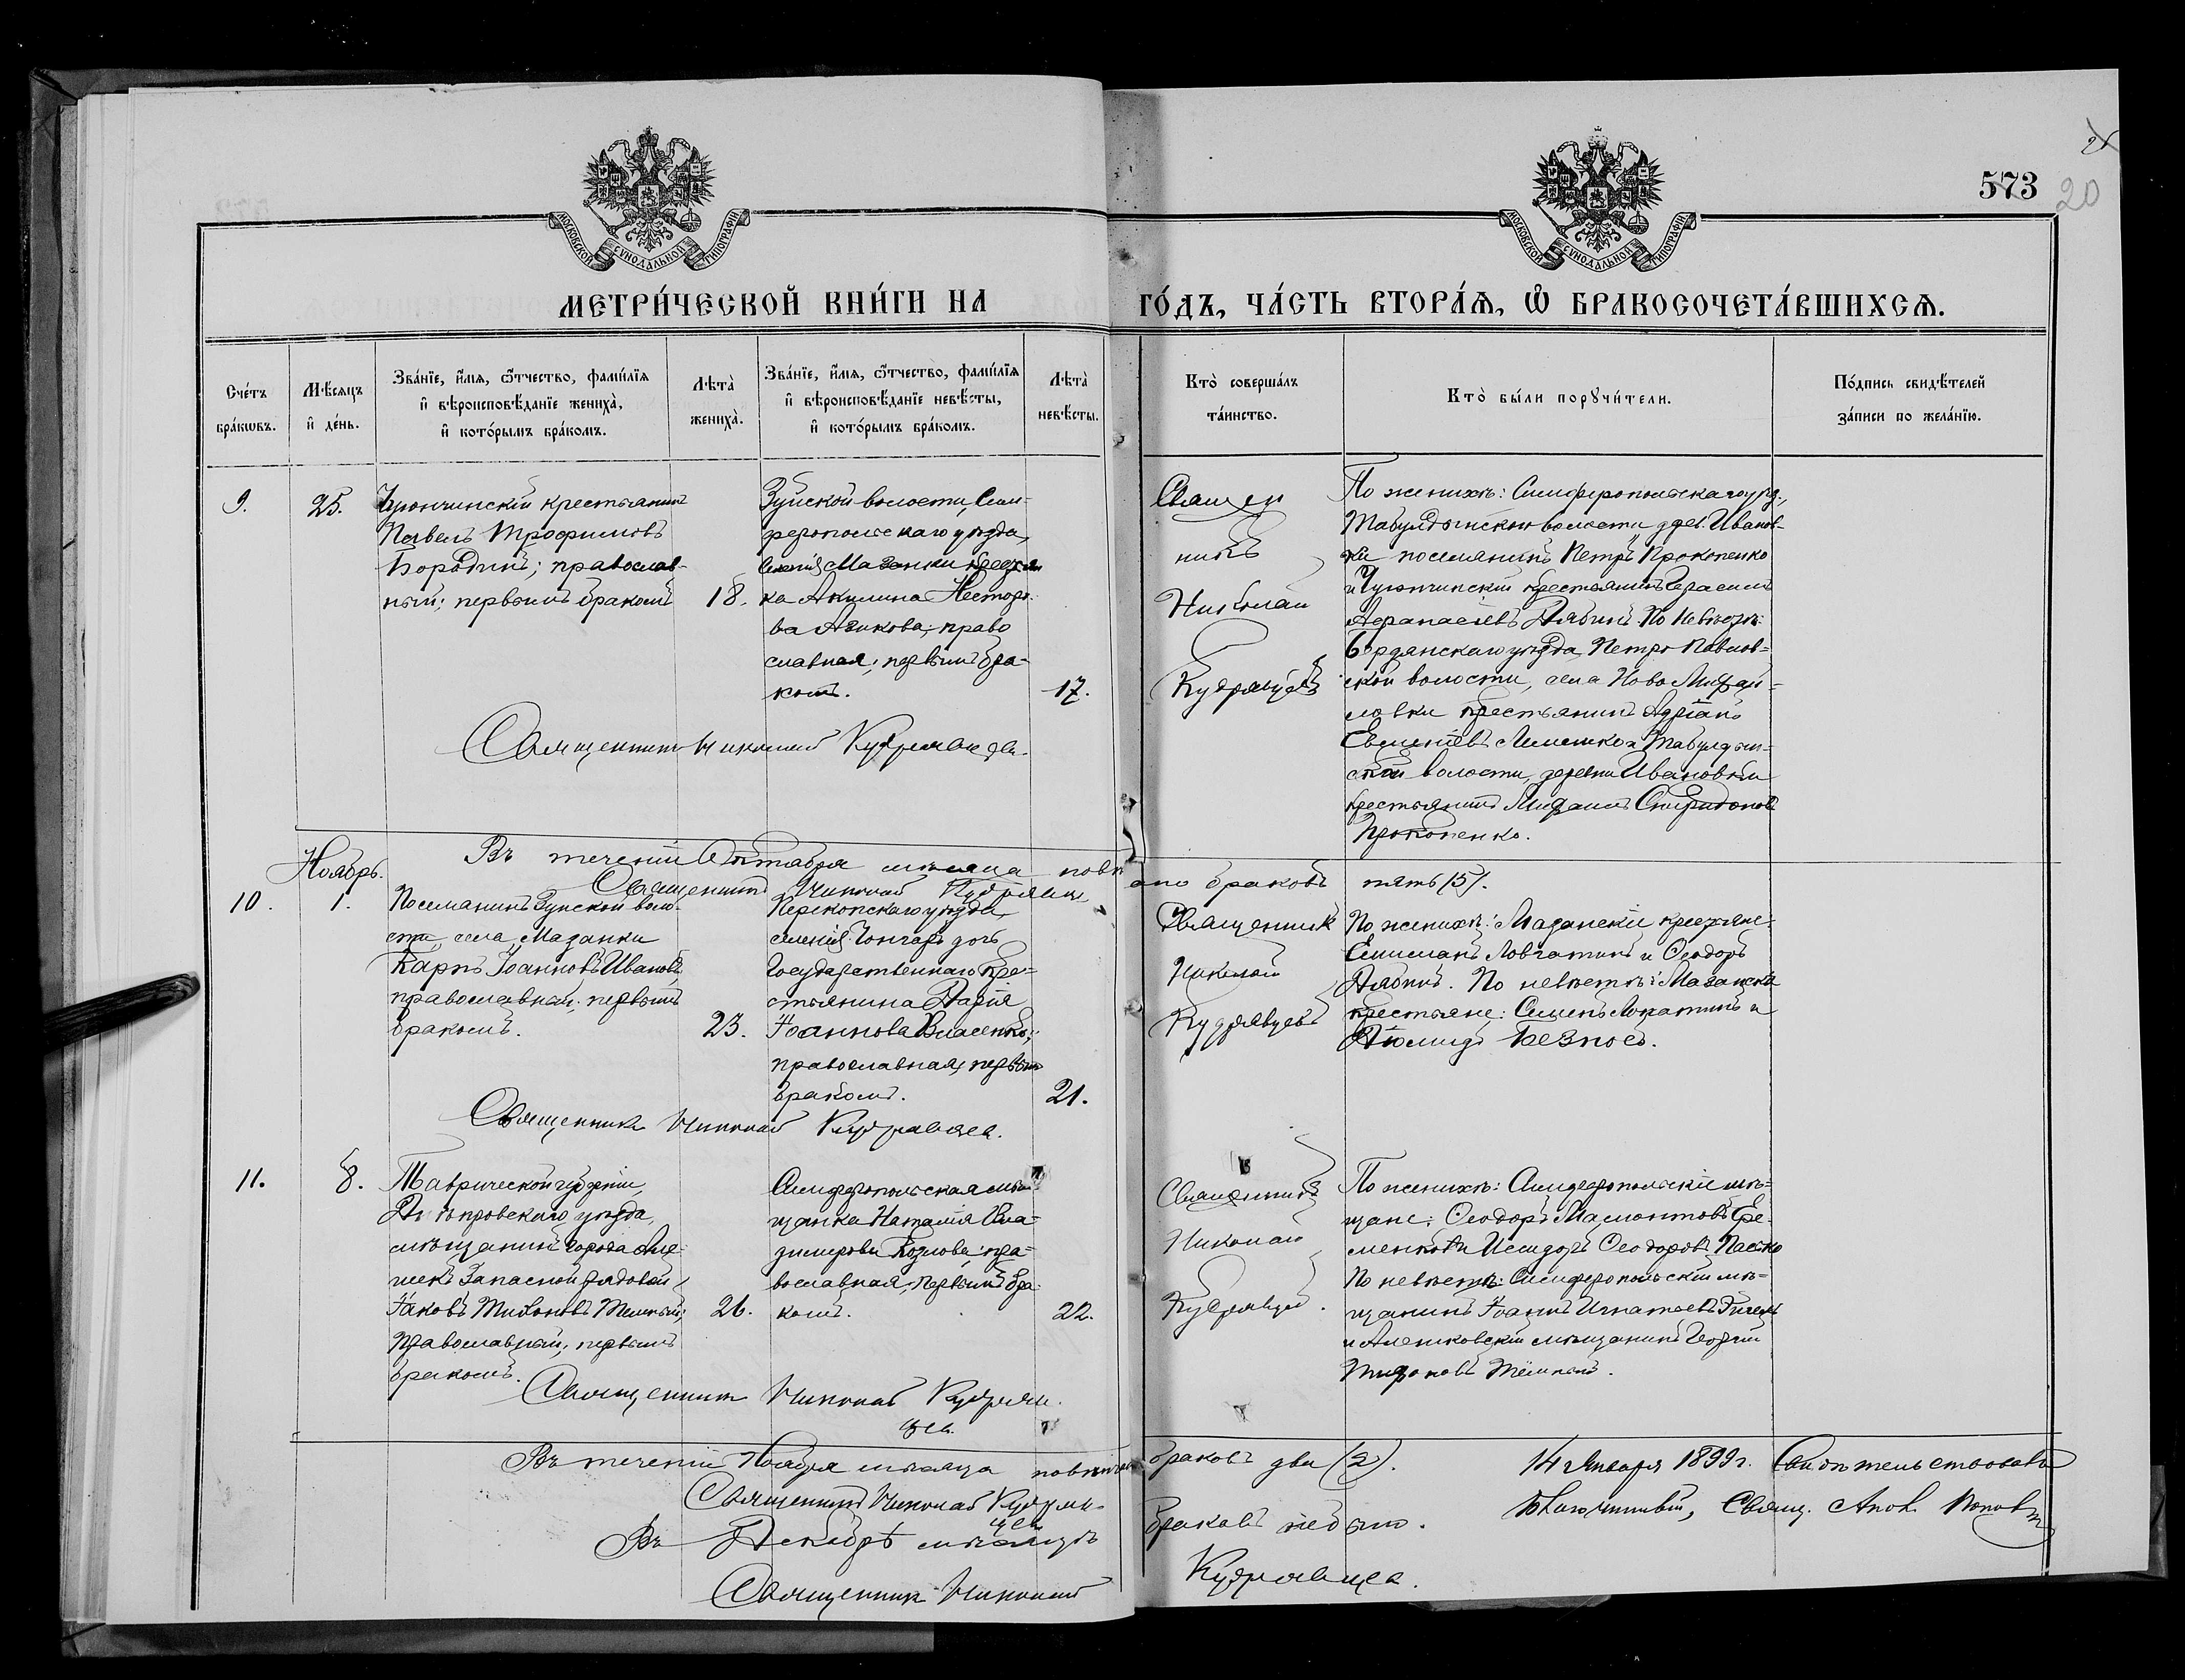 573
20
МОСКОВСКОЙ СѴНОДАЛЬНОЙ ТИПОГРАФІИ
МОСКОВСКОЙ СѴНОДАЛЬНОЙ ТИПОГРАФІИ
МЕТРИ́ЧЕСКОЙ КНИ́ГИ НА ГО́ДЪ, ЧА́СТЬ ВТОРА́Ѧ, Ѽ БРАКОСОЧЕТА́ВШИХСѦ.
Сче́тъ
бра́кѡвъ.
Мѣ́сѧцъ
и҆ де́нь.
Зва́нїе, и҆́мѧ, ѻ҆́тчество, фами́лїѧ
и҆ вѣроисповѣ́данїе жениха̀,
и҆ кото́рымъ бра́комъ.
Лѣта̀
жениха̀.
Зва́нїе, и҆́мѧ, ѻ҆́тчество, фами́лїѧ
и҆ вѣроисповѣ́данїе невѣ́сты,
и҆ кото́рымъ бра́комъ.
Лѣта̀
невѣ́сты.
Кто̀ соверша́лъ
та́инство.
Кто̀ бы́ли порꙋчи́тели.
По́дпись свидѣ́телей
за́писи по жела́нїю.
9.
25.
крестьянинъ
Павелъ Трофимовъ
Бородинъ; православ-
ный; первымъ бракомъ
18.
Зуйской волости, Сим-
феропольскаго уѣзда,
селенія Мазанки крестьян
ка Акилина Несторо-
ва Азикова; право
славная; первымъ бра-
комъ.
17.
Священ
никъ
Николай
Кудрявцевъ
По женихѣ: Симферопольскаго уѣз.,
Табулдынской волости, дер. Иванов-
ки поселянинъ Петръ Прокопенко
и крестьянинъ Герасимъ
По невѣстѣ:
Бердянскаго уѣзда Петро Павлов-
ской волости, села Ново Михай-
ловки крестьянинъ Адріанъ
и Табулдын-
ской волости, деревни Ивановки
крестьянинъ Михаилъ Спиридоновъ
Прокопенко.
Священникъ Николай Кудрявцевъ.
Въ теченіи Октября мѣсяца повѣнчано браковъ пять /5/.
Священникъ Николай Кудрявцевъ
Ноябрь.
10.
1.
Поселянинъ Зуйской воло-
сти, села Мазанки
Карпъ Іоанновъ Ивановъ,
православный; первымъ
бракомъ.
23.
Перекопскаго уѣзда,
селенія Гончаръ дочь
Государственнаго кре-
стьянина Дарія
Іоаннова Власенко;
православная; первымъ
бракомъ.
21.
Священникъ
Николай
Кудрявцевъ
По женихѣ: Мазанскіе крестьяне
и Ѳеодоръ
По невѣстѣ: Мазанскіе
крестьяне: Семенъ Лопатинъ и
Священникъ Николай Кудрявцевъ.
11.
8.
Таврической губерніи,
Днѣпровскаго уѣзда,
мѣщанинъ города Але-
шекъ Запасной рядовой
Іаковъ Тихоновъ Темный;
православный; первымъ
бракомъ.
26.
Симферопольская мѣ-
щанка Наталія Вла-
димірова Козлова; пра-
вославная; первымъ бра-
комъ.
22.
Священникъ
Николай
Кудрявцев.
По женихѣ: Симферопольскіе мѣ-
щане: Ѳеодоръ Мамонтовъ Ере-
менко и Исидоръ Ѳеодоровъ
По невѣстѣ: Симферопольскій мѣ-
щанинъ Іоаннъ Игнатьевъ
и Алешковскій мѣщанинъ Георгій
Тихоновъ Темный.
Священникъ Николай Кудряв-
цевъ.
Въ теченіи Ноября мѣсяца повѣнчано браковъ два (2).
Священникъ Николай Кудряв-
цевъ
Въ Декабрѣ мѣсяцѣ браковъ не было.
Священникъ Николай Кудрявцев.
14 Января 1899 г. Свидѣтельствовалъ
Благочинный, Свящ. Попов